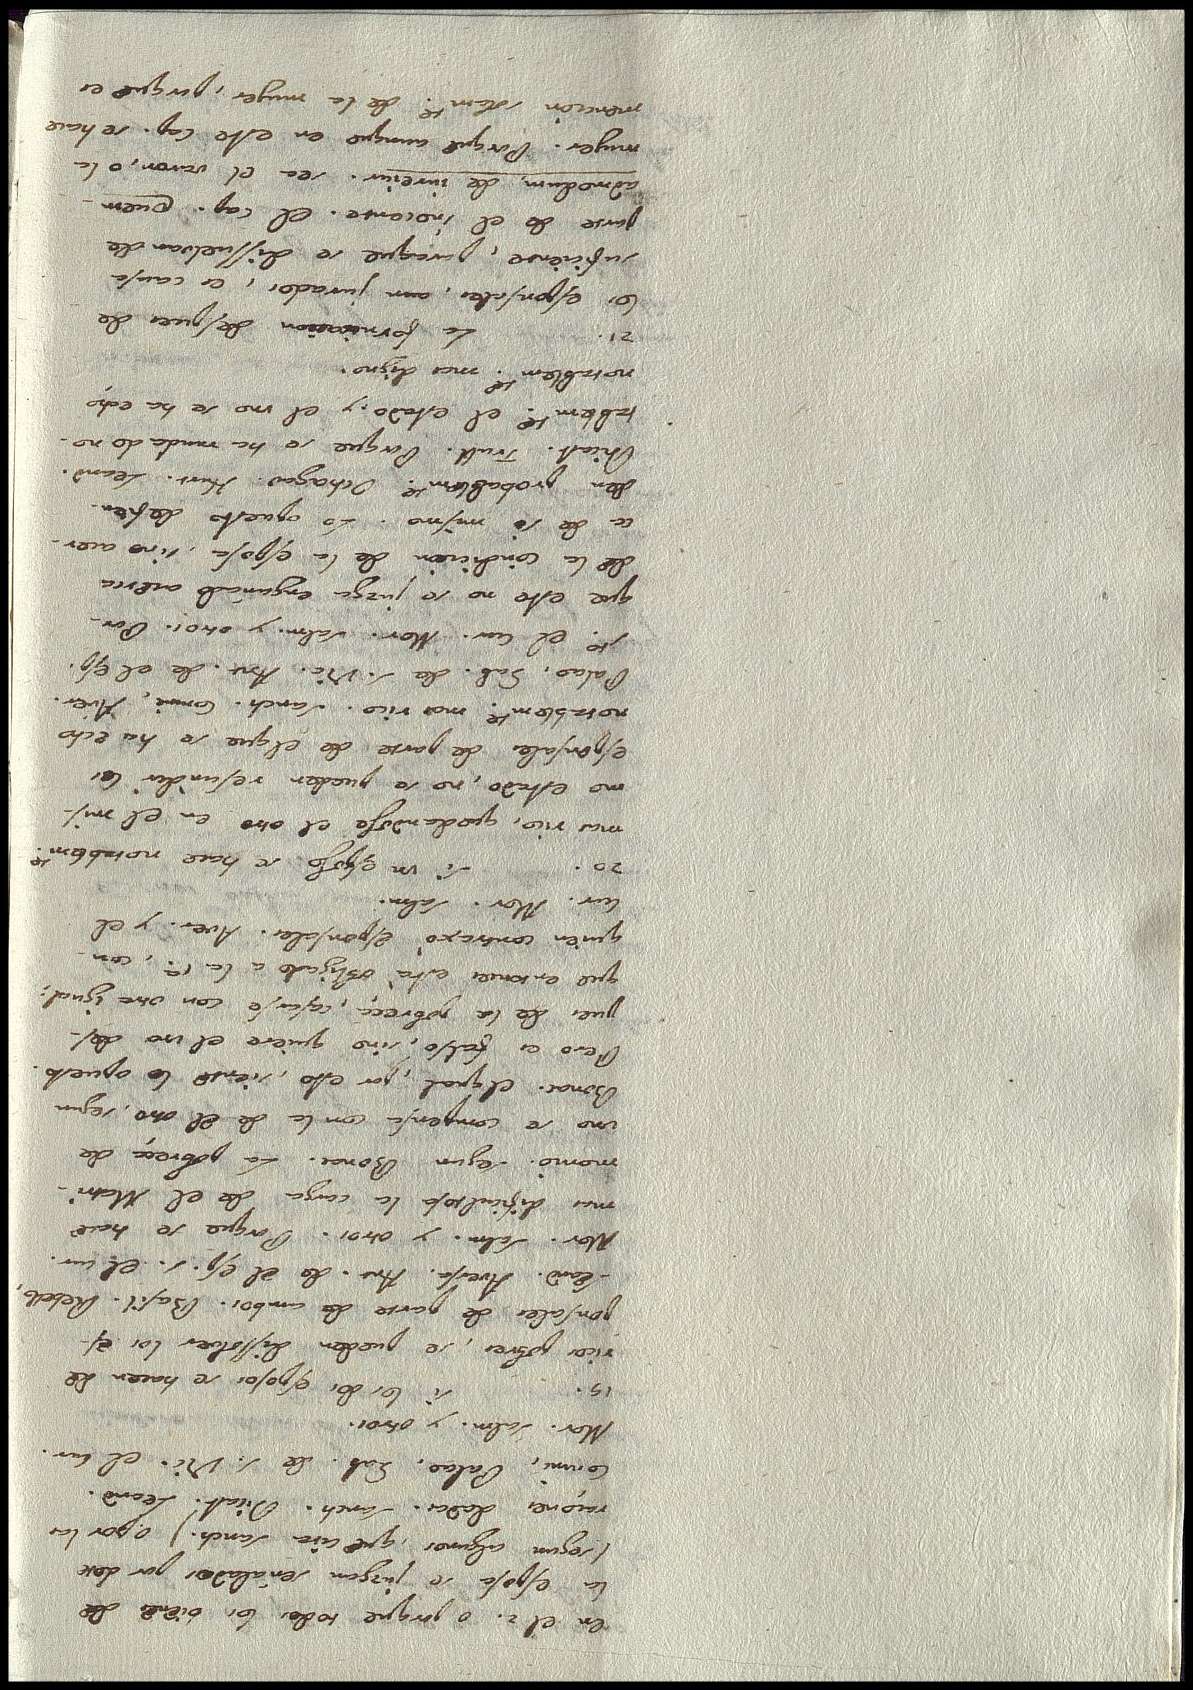 en el 2. o porque todos los bienes de
la esposa se juzgan señalados por dote
(segun algunos, que cita Sanch.) o por las
raçones dadas. Sanch. Dicast. Leand.
Conni, Palao, Gab. de S. Vic. el cur.
Mor. Salm. y otros.
19. Si los dos esposos se hacen de
ricos pobres, se pueden dissolver los es-
ponsales de parte de ambos. Basil. Rebello,
Leand. Aversa. Ant. de el Esp. S. el cur.
Mor. Salm. y otros. Porque se hace
mas dificultosa la carga de el Matri-
monio. Segun Bonac. La pobreça de
uno se compensa con la de el otro, segun
Bonac. el qual, por esto, siente lo opuesto.
Pero es falso, sino quiere el uno des-
pues de la pobreça, casarse con otra igual;
que entonces está obligado a la 1ª, con
quien contraxo esponsales. Aver. y el
cur. Mor. Salm.
20. Si un esposo se hace notablemte
mas rico, quedandose el otro en el mis-
mo estado, no se pueden rescindir los
esponsales de parte de el que se ha echo
notablemte mas rico. Sanch. Conni, Aver.
Palao, Gab. de S. Vic. Ant. de el Esp.
Sto el cur. Mor. Salm. y otros. Por-
que este no se juzga engañado acerca
de la condicion de la esposa, sino acer-
ca de si mismo. Lo opuesto defien-
den probablemte Ochagav. Hurt. Leand.
Dicast. Trull. Porque se ha mudado no-
tablemte el estado, y el uno se ha echo
notablemte mas digno.
21. La fornicacion despues de
los esponsales, aun jurados, es causa
suficiente, paraque se dissuelvan de
parte de el inocente. el cap. Quem-
admodum, de iureiur. sea el varon, o la
muger. Porque aunque en este cap. se hace
mencion solamte de la muger, porque es